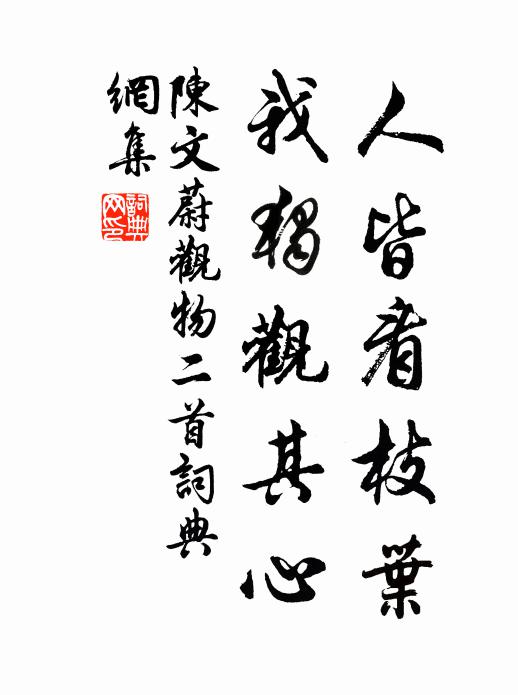 人皆看枝葉
我独觀其心
陳文蔚觀物二首詞典
網集
詞典
网印